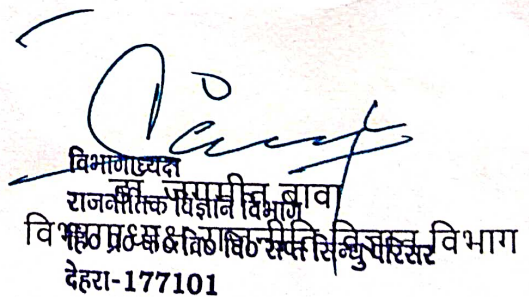 विभागाध्यक्ष
डा. जगमीत बावा
राजनीतिक विज्ञान विभाग
विभागाध्यक्ष राजनीति विज्ञान विभाग
हि० प्र० के० वि० वि० सप्त सिन्धु परिसर
देहरा-177101